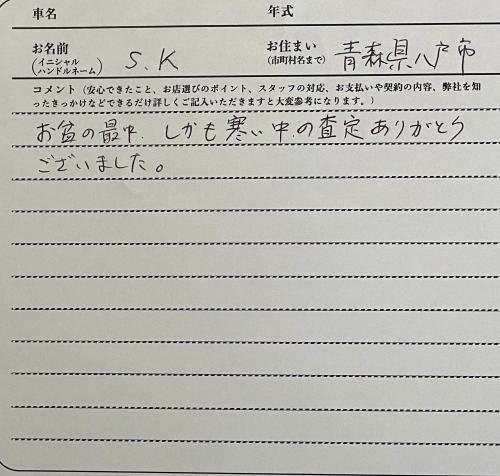 車名 年式
お名前 (イニシャル ハンドルネーム) S.K お住まい (市町村名まで) 青森県八戸市
コメント（安心できたこと、お店選びのポイント、スタッフの対応、お支払いや契約の内容、弊社を知
ったきっかけなどできるだけ詳しくご記入いただきますと大変参考になります。）
お盆の最中、しかも寒い中の査定ありがとう
ございました。